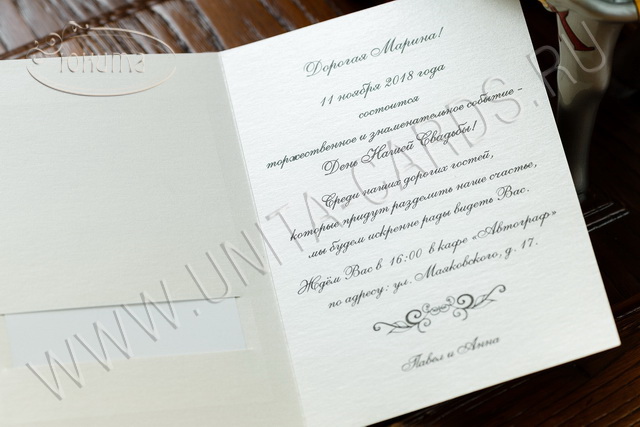 Юнита
Дорогая Марина!
11 ноября 2018 года
состоится
торжественное и знаменательное событие –
День Нашей Свадьбы!
Среди наших дорогих гостей,
которые придут разделить наше счастье,
мы будем искренне рады видеть Вас.
Ждём Вас в 16:00 в кафе «Автограф»
по адресу: ул. Маяковского, д. 17.
Павел и Анна
WWW.UNITA-CARDS.RU